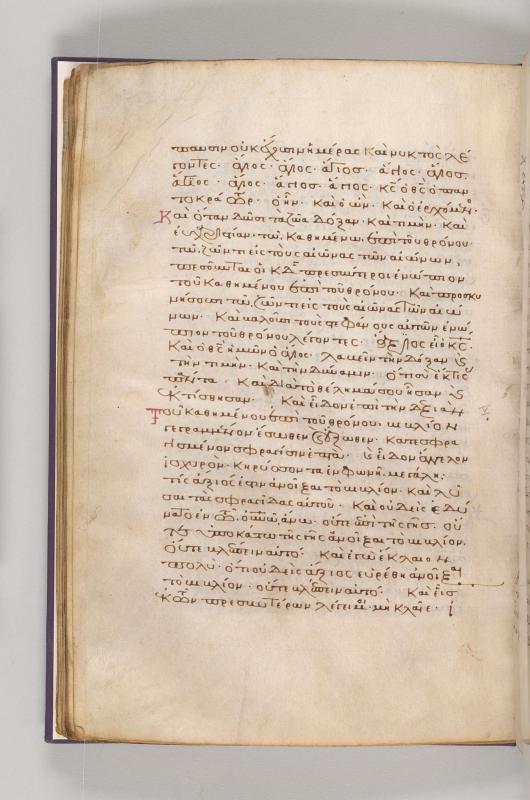 παυσιν οὐκ ἔχουσιν ἡμέρας καὶ νυκτὸς λέ
γοντες· ἅγιος· ἅγιος· ἅγιος· ἅγιος· ἅγιος·
ἅγιος· ἅγιος· ἅγιος· ἅγιος· κς ὁ θς ὁ παν
τοκράτωρ· ὁ ἦν· καὶ ὁ ὢν· καὶ ὁ ἐρχόμενος·
Καὶ ὅταν δῶσι τὰ ζῶα δόξαν· καὶ τιμὴν· καὶ
εὐχαριστίαν· τῶ καθημένω ἐπὶ τοῦ θρόνου·
τῶ ζῶντι εἰς τοὺς αἰῶνας τῶν αἰώνων·
πεσοῦνται οἱ κδ πρεσβύτεροι ἐνώπιον
τοῦ καθημένου ἐπὶ τοῦ θρόνου· καὶ προσκυ
νήσουσι τῶ ζῶντι εἰς τοὺς αἰῶνας τῶν αἰώ
νων· καὶ βαλοῦσι τοὺς στεφάνους αὐτῶν ἐνώ
πιον τοῦ θρόνου λέγοντες· ἄξιος εἶ ὁ κς·
καὶ ὁ θς ἡμῶν ὁ ἅγιος· λαβεῖν τὴν δόξαν καὶ
τὴν τιμὴν· καὶ τὴν δύναμιν· ὅτι σὺ ἔκτισας
τὰ πάντα· καὶ διὰ τὸ θέλημά σου ἦσαν καὶ
ἐκτίσθησαν· καὶ εἶδον ἐπὶ τὴν δεξιὰν
Τοῦ καθημένου ἐπὶ τοῦ θρόνου· βιβλίον
γεγραμμένον ἔσωθεν καὶ ἔξωθεν· κατεσφρα
γισμένον σφραγῖσιν ἑπτά· καὶ εἶδον ἄγγελον
ἰσχυρὸν· κηρύσσοντα ἐν φωνῆ μεγάλη·
τίς ἄξιός ἐστιν ἀνοῖξαι τὸ βιβλίον· καὶ λῦ
σαι τὰς σφραγίδας αὐτοῦ· καὶ οὐδεὶς ἐδύ
νατο ἐν τῶ οὐνῶ ἄνω· οὔτε ἐπὶ τῆς γῆς· οὔ
τε ὑποκάτω τῆς γῆς ἀνοῖξαι τὸ βιβλίον·
οὔτε βλέπειν αὐτό· καὶ ἐγὼ ἔκλαιον
πολὺ· ὅτι οὐδεὶς ἄξιος εὑρέθη ἀνοῖξαι
τὸ βιβλίον· οὔτε βλέπειν αὐτό· καὶ εἷς
ἐκ τῶν πρεσβυτέρων λέγει μοι· μὴ κλαῖε· ἰ